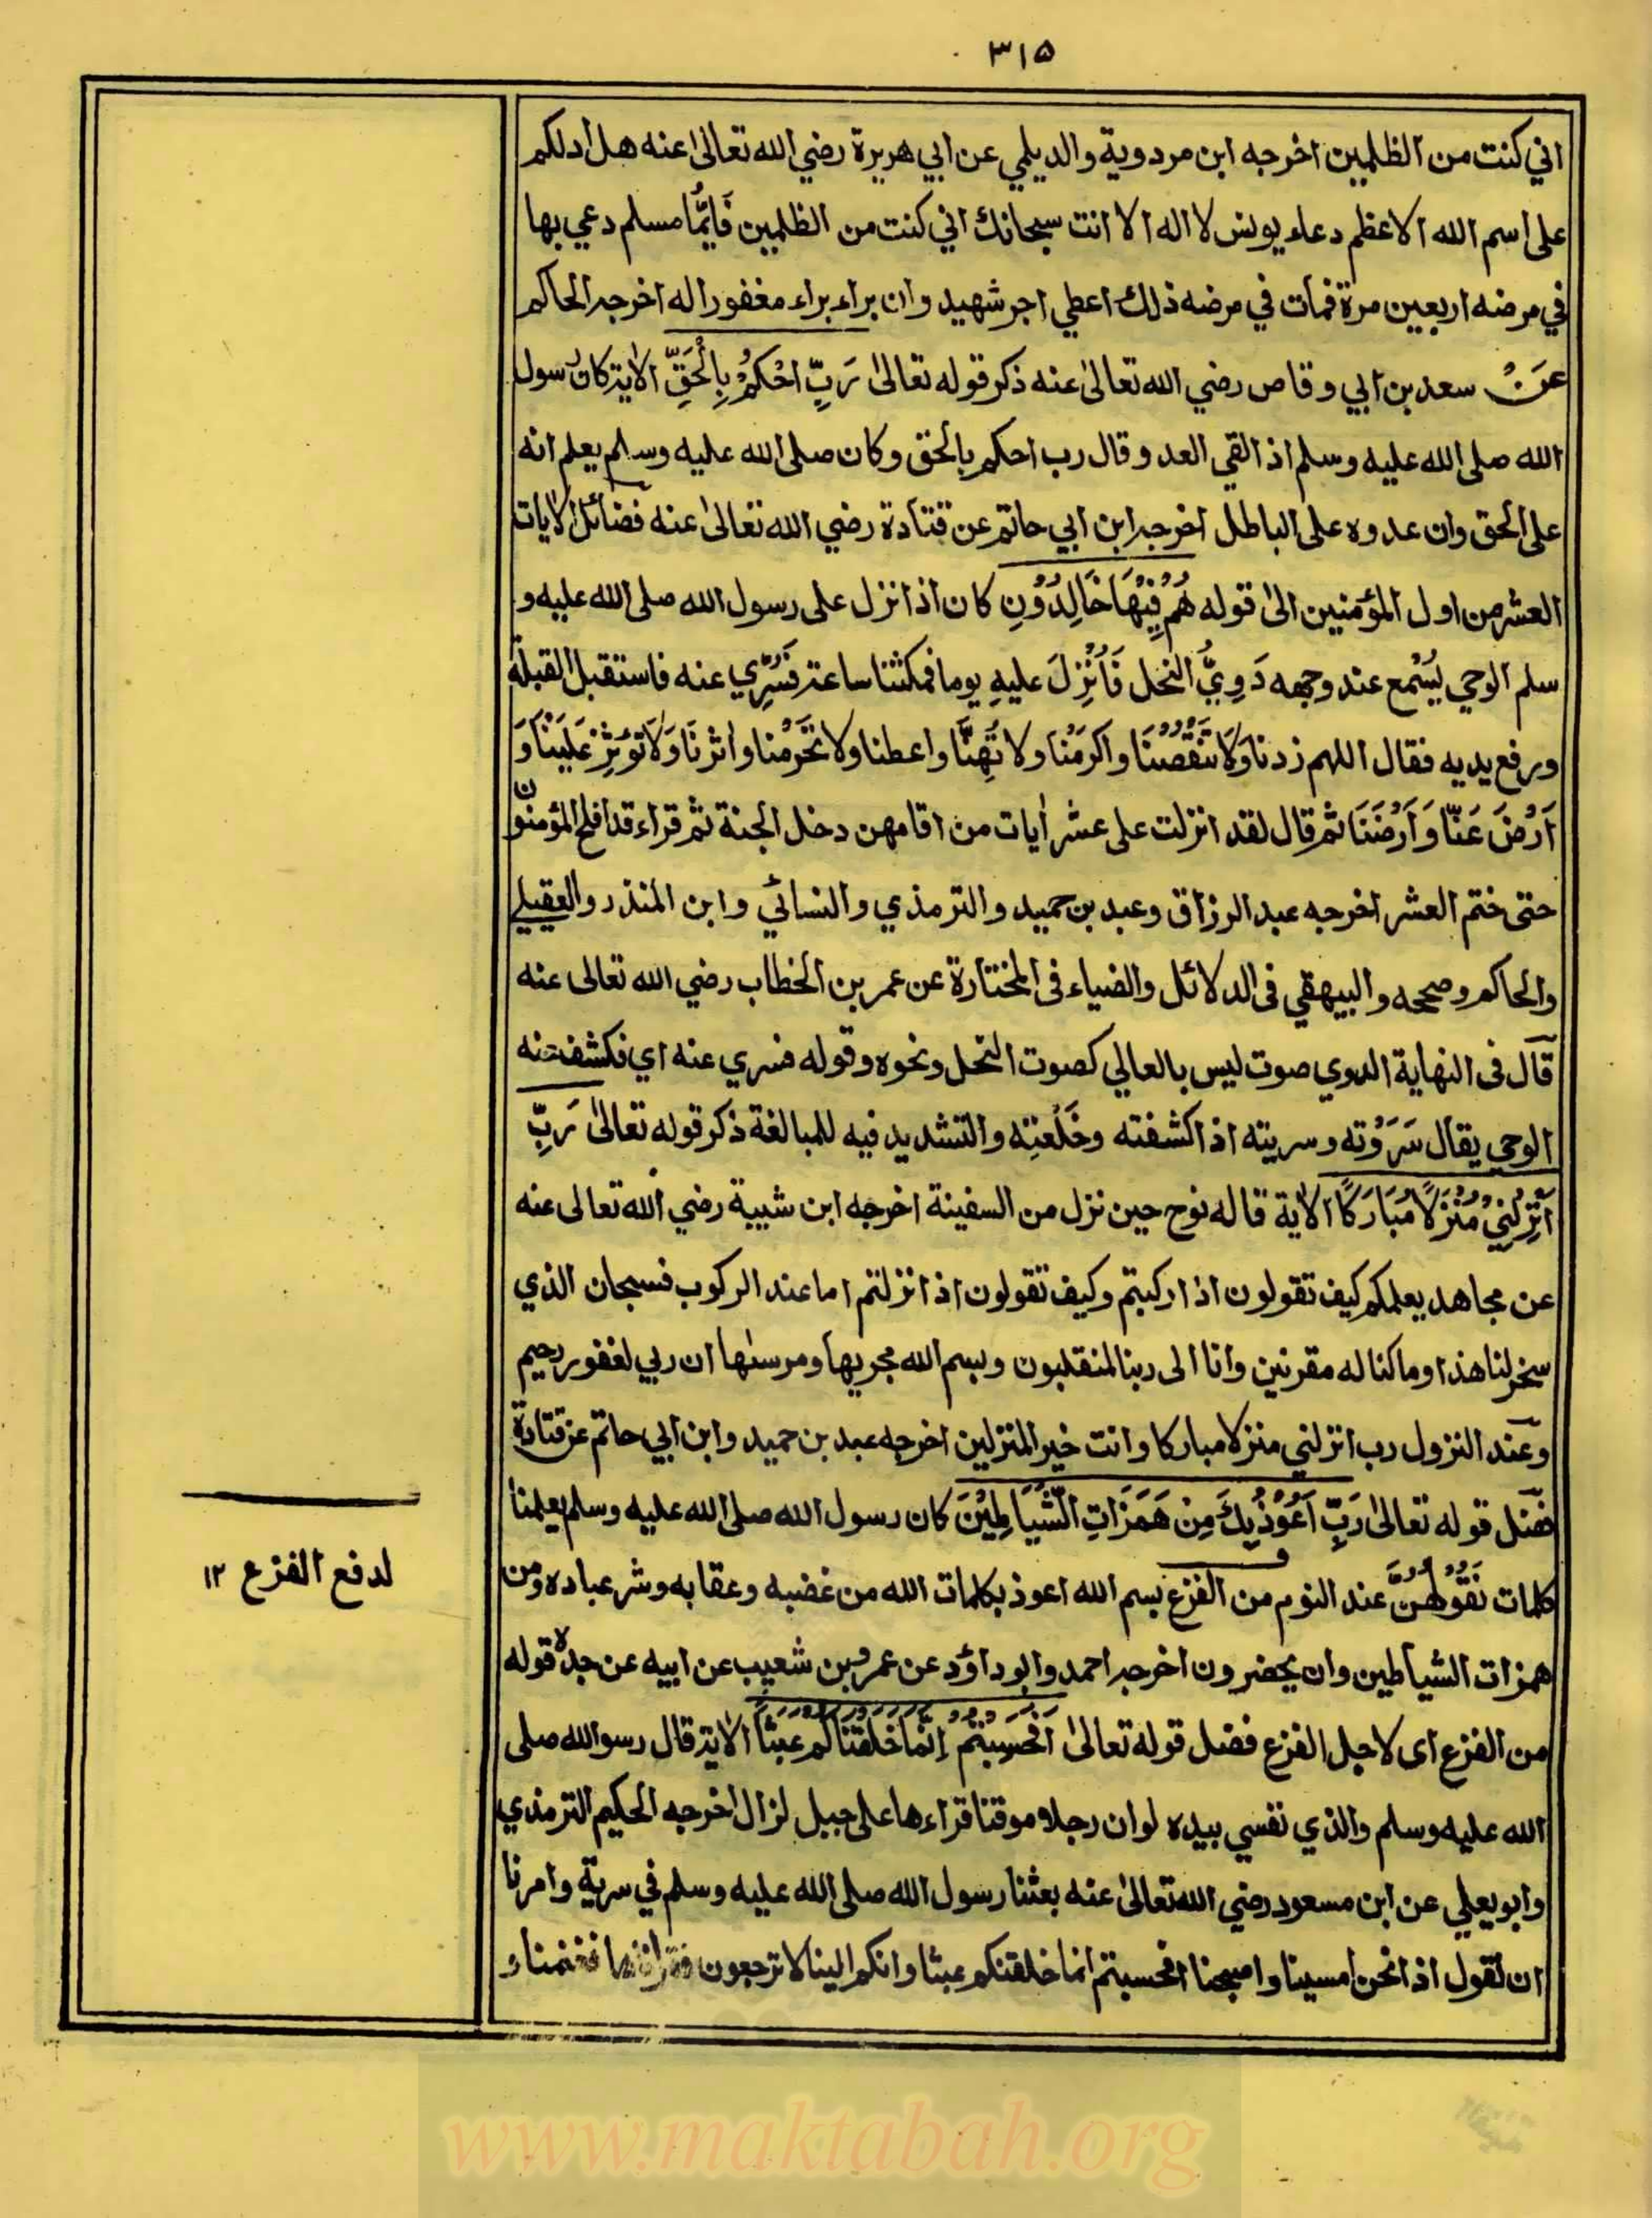 ٣١٥
اني كنت من الظلمين اخرجه ابن مردوية والديلمي عن ابي هريرة رضي الله تعالىٰ عنه هل ادلكم
على اسم الله الاعظم دعاء يونس لا اله الا انت سبحانك اني كنت من الظلمين فَايُّمَا مسلم دعي بها
في مرضه اربعين مرة فمات في مرضه ذلك اعطي اجر شهيد وان براء براء مغفورا له اخرجه الحاكم
عن سعد بن ابي وقاص رضي الله تعالىٰ عنه ذكر قوله تعالىٰ رَبِّ احْكُمْ بِالْحَقِّ الاية كان رسول
الله صلى الله عليه وسلم اذ القي العدو قال رب احكم بالحق وكان صلى الله عليه وسلم يعلم انه
على الحق وان عدوه على الباطل اخرجه ابن ابي حاتم عن قتادة رضي الله تعالىٰ عنه فضائل الايات
العشر من اول المؤمنين الىٰ قوله هُمْ فِيْهَا خَالِدُوْنِ كان اذا نزل على رسول الله صلى الله عليه و
سلم الوحي يُسْمع عند وجهه دَوِيُّ النحل فَاُنْزِلَ عليهِ يوما فمكثنا ساعة فَسُرِّي عنه فاستقبل القبلة
ورفع يديه فقال اللهم زدنا وَلَا تَنْقُصْنَا واكرمْنا ولا تُهِنَّا واعطنا ولا تَحْرِمْنا واثرنَا وَلَا تُؤثِرْ عَلَيْنَا وَ
اَرْضَ عَنَّا وَاَرْضَنَا ثم قال لقد انزلت على عشر اٰيات من اقامهن دخل الجنة ثم قراء قد افلح المؤمنون
حتى ختم العشر اخرجه عبد الرزاق وعبد بن حميد والترمذي والنسائي وابن المنذر والعقيلي
والحاكم وصححه والبيهقي فى الدلائل والضياء فى المختارة عن عمر بن الخطاب رضي الله تعالى عنه
قال فى النهاية الدوي صوت ليس بالعالي كصوت النحل ونحوه وقوله فسري عنه اي نكشفت نه
الوحي يقال سَرَوْته وسريته اذا كشفته وخَلَعْتِه والتشديد فيه للمبالغة ذكر قوله تعالىٰ رَبِّ
اَنْزِلْنِيْ مُنْزَلًا مُبَارَكًا الاٰية قاله نوح حين نزل من السفينة اخرجه ابن شيبة رضي الله تعالى عنه
عن مجاهد يعلمكم كيف تقولون اذا ركبتم وكيف تقولون اذا نزلتم اما عند الركوب فسبحان الذي
سخر لنا هذا وما كنا له مقرنين وانا الى ربنا لمنقلبون وبسم الله مجريها ومرسٰها ان ربي لغفور رحيم
وعند النزول رب انزلني منزلا مباركا وانت خير المنزلين اخرجه عبد بن حميد وابن ابي حاتم عن قتادة
فضل قوله تعالىٰ رَبِّ اَعُوْذُ بِكَ مِنْ هَمَزَاتِ الشَّيَاطِيْنَ كان رسول الله صلى الله عليه وسلم يعلمنا
كلمات نَقُوْلُهُنَّ عند النوم من الفزع بسم الله اعوذ بكلمات الله من غضبه وعقابه وشر عباده ومن
لدفع الفزع ١٢
همزات الشياطين وان يحضرون اخرجه احمد وابو داؤد عن عمرو بن شعيب عن ابيه عن جده قوله
من الفزع اى لاجل الفزع فضل قوله تعالىٰ اَفَحَسِبْتُمْ اِنَّمَا خَلَقْنَاكُمْ عَبَثًا الاية قال رسو الله صلى
الله عليه وسلم والذي نفسي بيده لو ان رجلا موقنا قراءها على جبل لزال اخرجه الحكيم الترمذي
وابو يعلي عن ابن مسعود رضي الله تعالىٰ عنه بعثنا رسول الله صلى الله عليه وسلم في سرية وامرنا
ان نقول اذا نحن امسينا واصبحنا افحسبتم انما خلقنكم عبثا وانكم الينا لا ترجعون فغنمنا و
www.maktabah.org